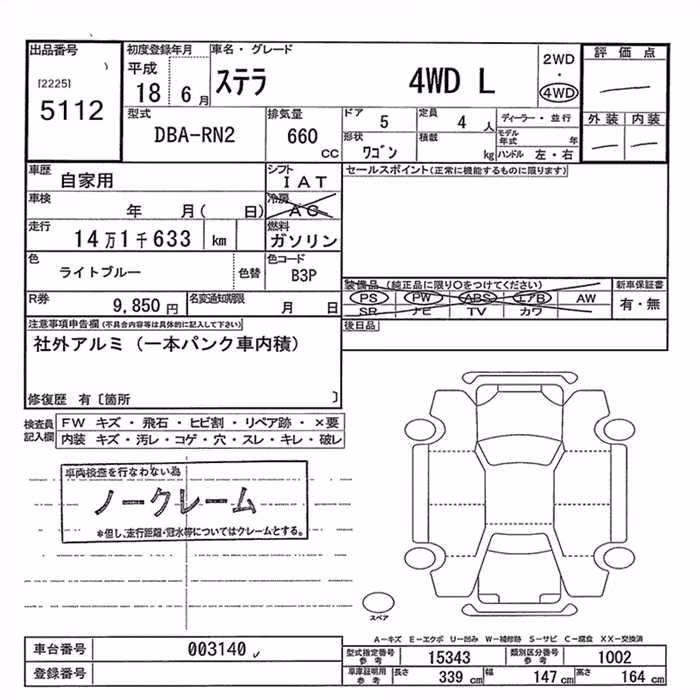 出品番号
[2225]
5112
初度登録年月
平成
18 6 月
車名・グレード
ステラ 4WD L
2WD
・
4WD
評価点
外装 内装
型式
DBA-RN2
排気量
660 CC
ドア 5
定員 4 人
形状 ワゴン
積載 kg
ディーラー・並行
モデル年式 年
ハンドル 左・右
車歴 自家用
シフト IAT
セールスポイント(正常に機能するものに限ります)
車検 年 月( 日)
冷房 AC
走行 14万1千633 km
燃料 ガソリン
色 ライトブルー 色替
色コード B3P
装備品 (純正品に限り○をつけてください)
PS PW ABS エアB AW
SR ナビ TV カワ
新車保証書
有・無
R券 9,850 円
名変通知期限 月 日
後日品
注意事項申告欄(不具合内容等は具体的に記入して下さい)
社外アルミ(一本パンク車内積)
修復歴 有〔箇所 〕
検査員記入欄
FW キズ・飛石・ヒビ割・リペア跡・×要
内装 キズ・汚レ・コゲ・穴・スレ・キレ・破レ
車両検査を行なわない為
ノークレーム
*但し、走行距離・冠水等についてはクレームとする。
スペア
A-キズ E-エクボ U-凹み W-補修跡 S-サビ C-腐食 XX-交換済
車台番号 003140
登録番号
型式指定番号参考 15343
類別区分番号参考 1002
車庫証明用参考 長さ 339 cm 幅 147 cm 高さ 164 cm